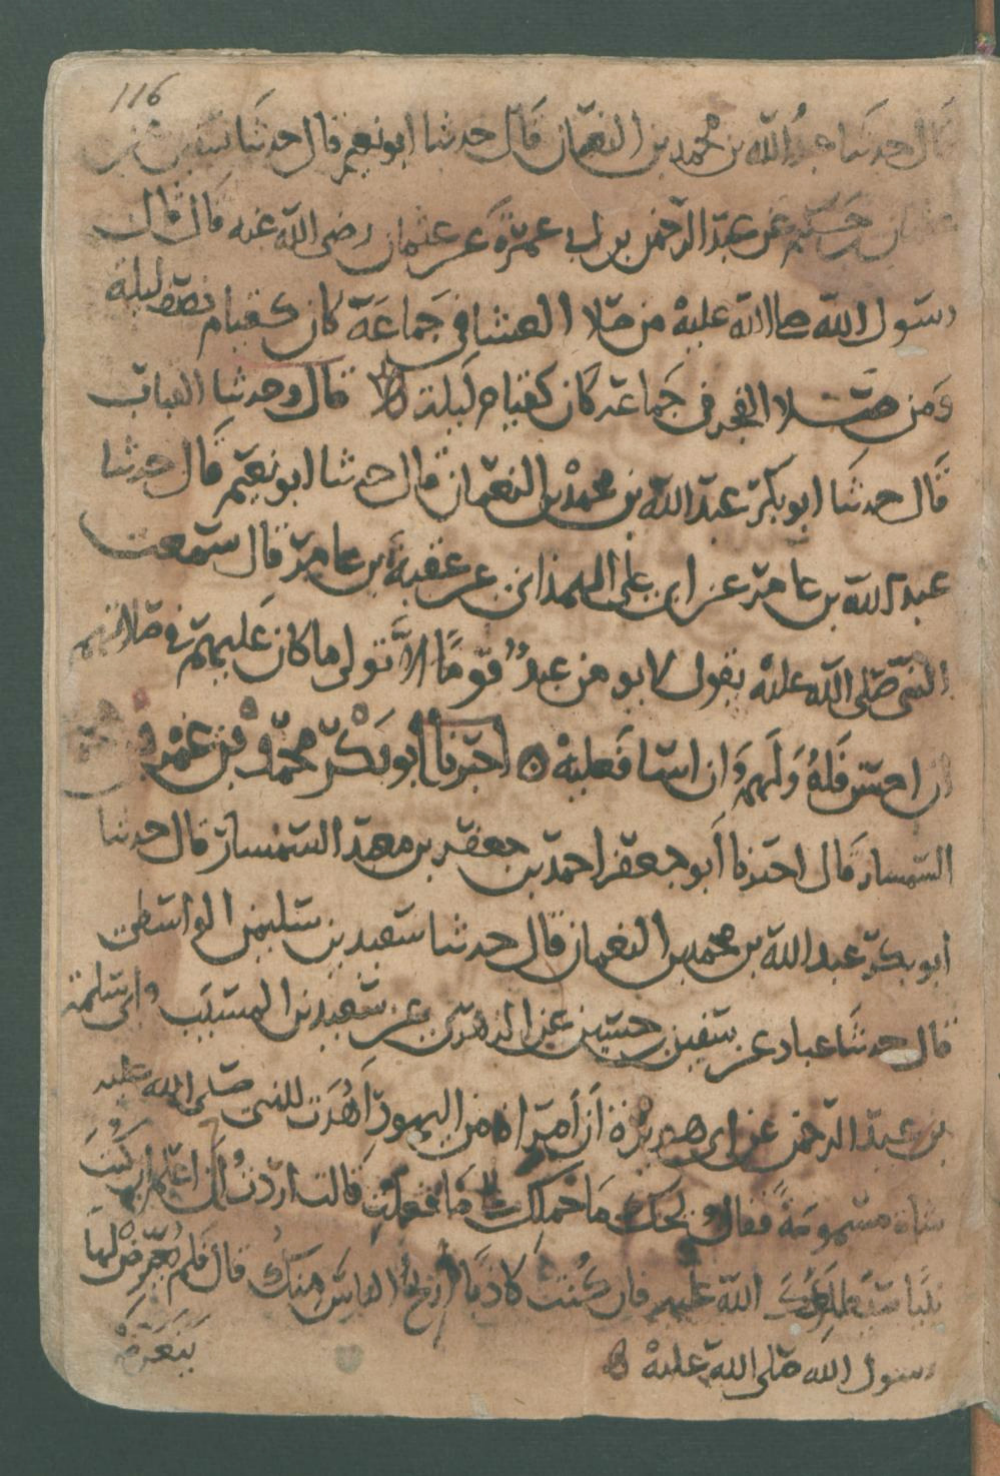 116
قال حدثنا عبد الله بن محمد بن النعمان قال حدثنا ابو نعيم قال حدثنا سفين عن
عثمان بن حكيم عن عبد الرحمن بن ابي عمرة عن عثمان رضى الله عنه قال قال
رسول الله صلى الله عليه من صلا العشا في جماعة كان كقيام نصف ليلة
ومن صلا الفجر في جماعة كان كقيام ليلة قال وحدثنا القباب
قال حدثنا ابو بكر عبد الله بن محمد بن النعمان قال حدثنا ابو نعيم قال حدثنا
عبد الله بن عامر عن ابي على الهمذاني عن عقبة بن عامر قال سمعت
النبي صلى الله عليه يقول لا يوم من عبد قوما الا تولى ما كان عليهم في صلاتهم
ان احسن فله ولهم وان اسا فعليه اخبرنا ابو بكر محمد بن عمر
السمسار قال اخبرنا أبو جعفر احمد بن جعفر بن معبد السمسار قال حدثنا
ابو بكر عبد الله بن محمد بن النعمان قال حدثنا سعيد بن سليمن الواسطى
قال حدثنا عباد عن سفين بن حسين عن الزهري عن سعيد بن المسيب وابي سلمة
بن عبد الرحمن عن ابي هريرة أن أمراة من اليهود أهدت للنبي صلى الله عليه
شاة مسمومة فقال ويحك ما حملك على ما فعلت قالت اردت أن اعلم ان كنت
نبيا الله عليه وان كنت كاذبا أريح الناس منك قال فلم يعرض لها
رسول الله صلى الله عليه
يتعرض